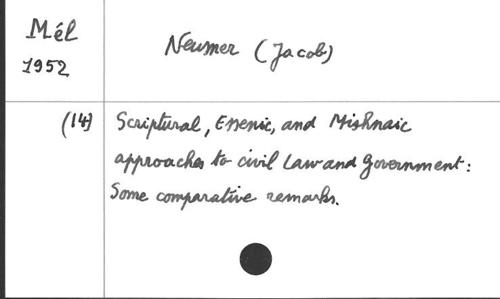 Mél
1952
Neusner (Jacob)
(14)
Scriptural, Essenic, and Mishnaic
approaches to civil Law and Government:
Some comparative remarks.